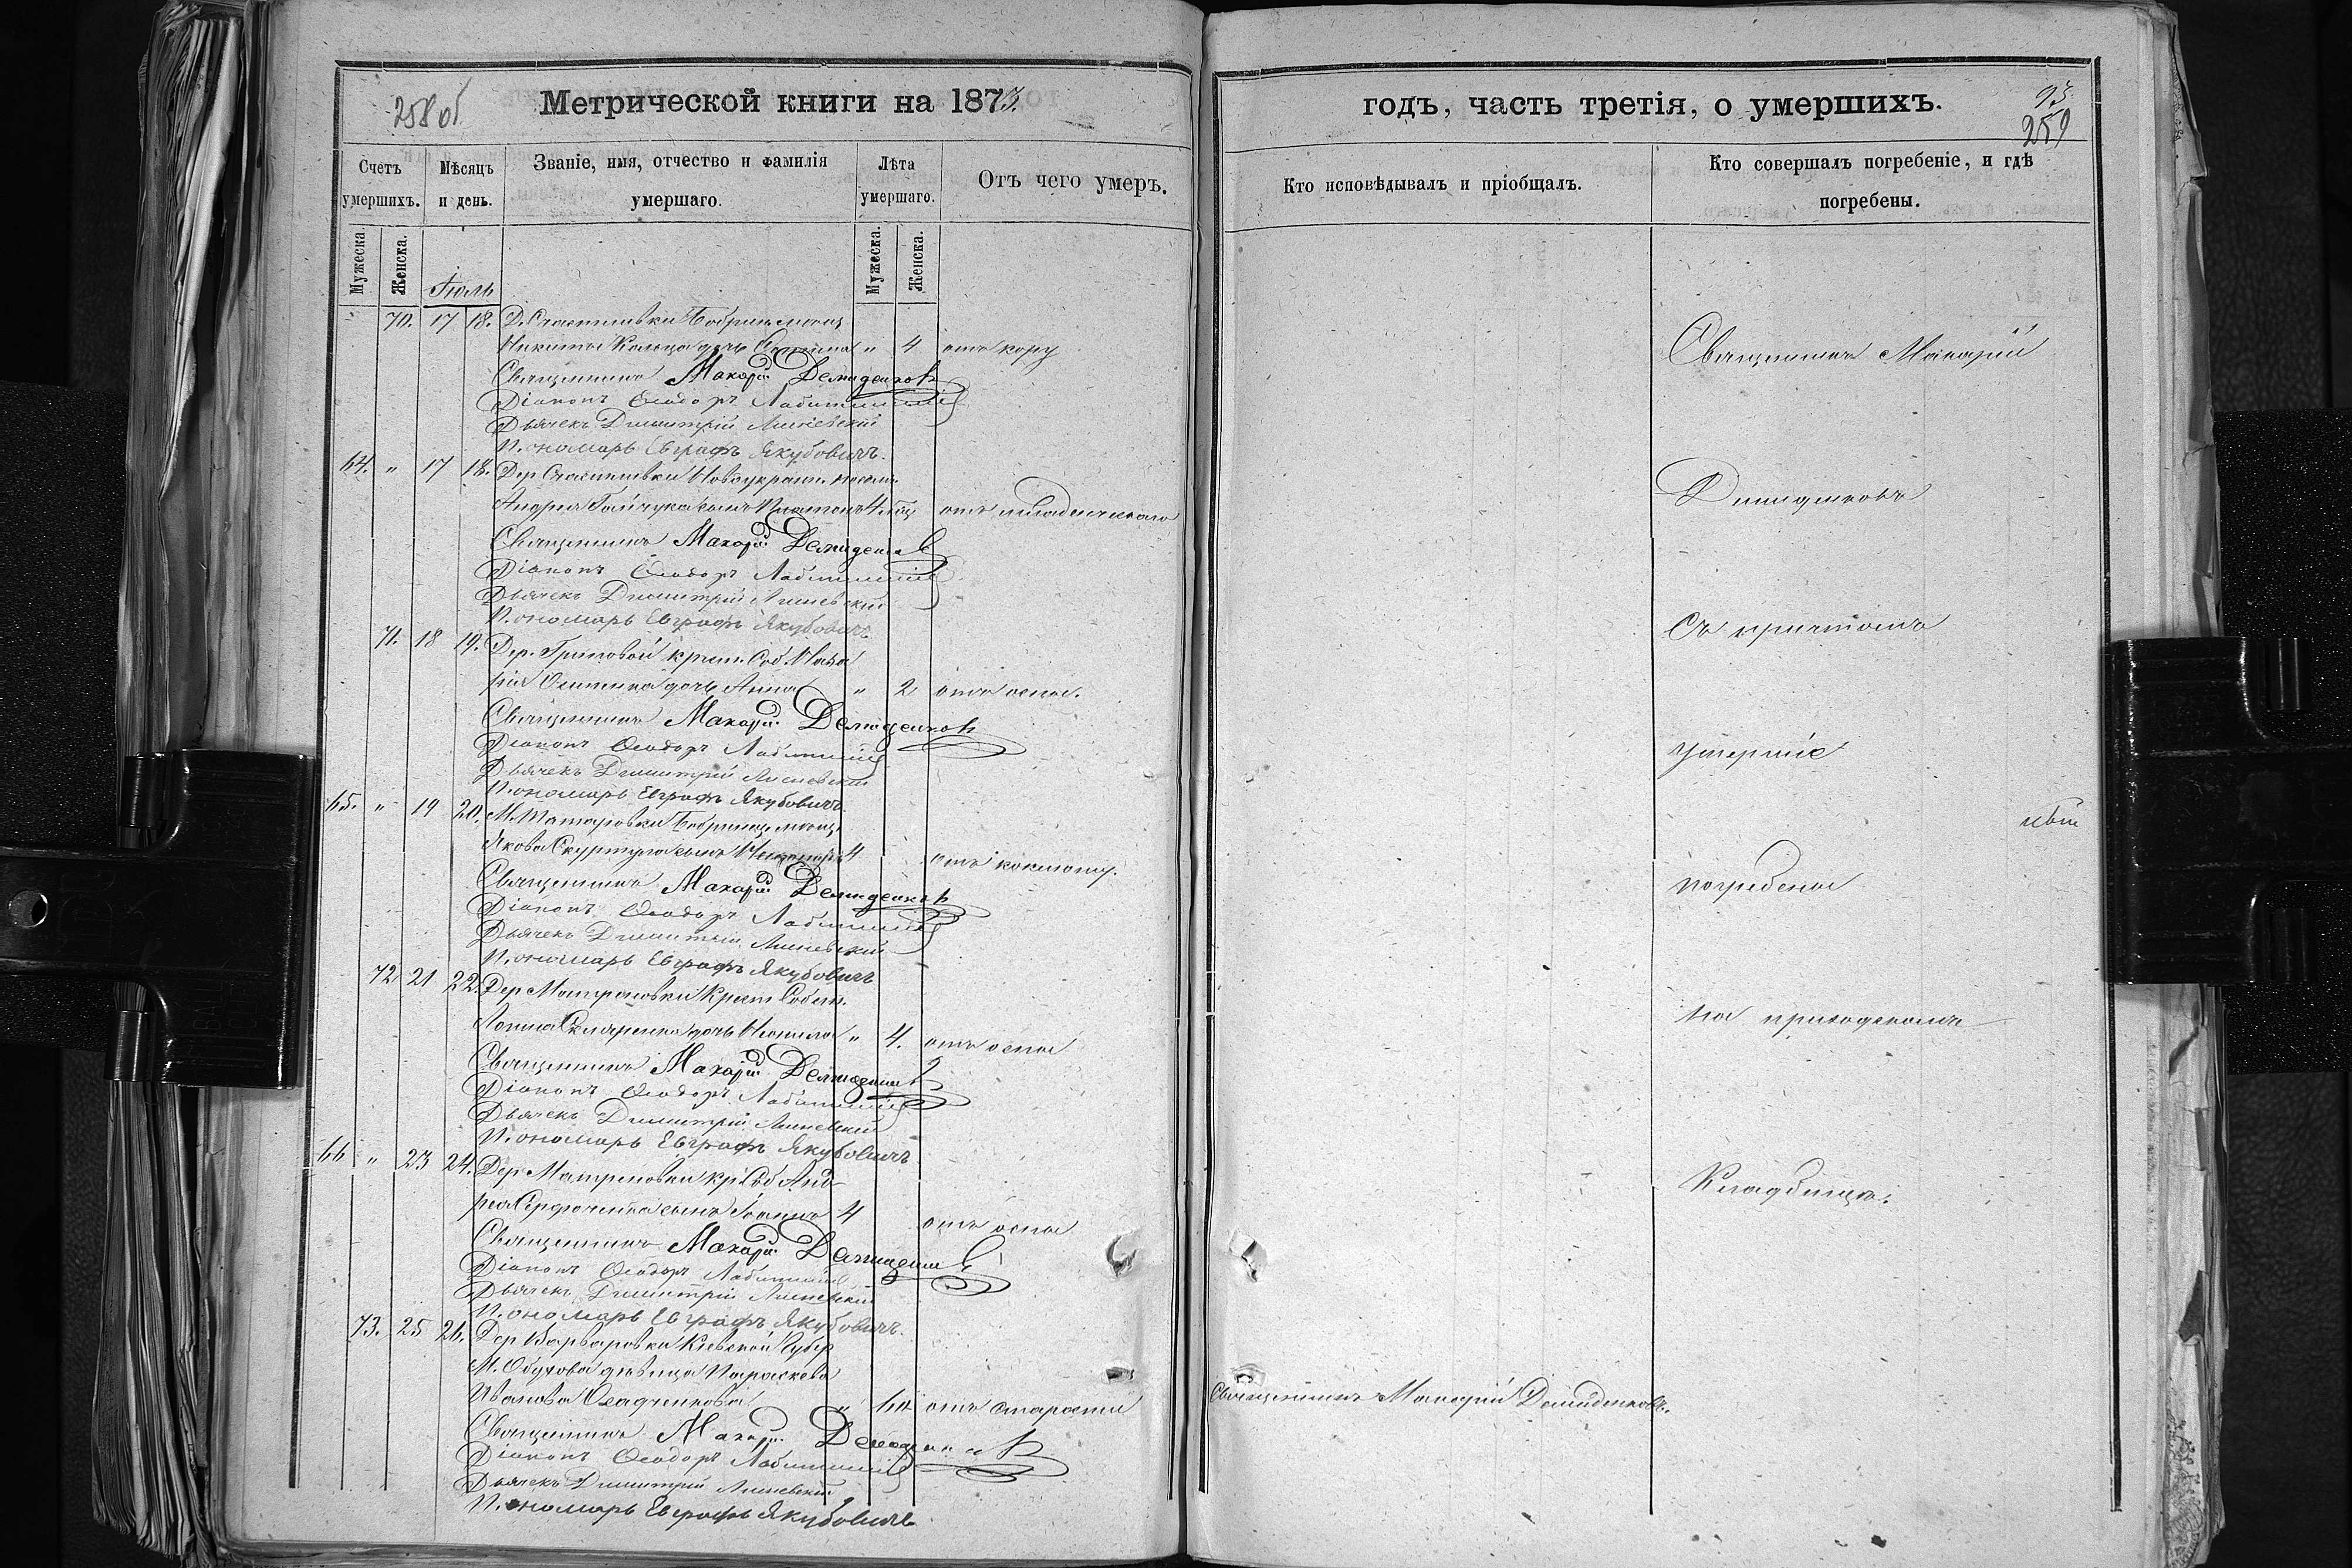 258 об
Метрической книги на 1873.
Счетъ умершихъ.
Мѣсяцъ и день.
Званіе, имя, отчество и фамилія умершаго.
Лѣта умершаго.
Отъ чего умеръ.
Мужеска
Женска.
Іюль
Мужеска.
Женска.
70. 17 18. Д. Счастливки Бобринец. мѣщ.
Никиты дочь " 4 отъ кору
Священникъ Макарій Демиденковъ
Діаконъ Ѳеодоръ
Дьячекъ Димитрій Линевскій
Пономарь Евграфъ Якубовичъ.
64. " 17 18. Дер Счастливки Новоукраин.
Андрея Гайчука сынъ Платонъ 4 мѣсц отъ младенческаго
Священникъ Макарій Демиденковъ
Діаконъ Ѳеодоръ
Дьячекъ Димитрій Линевскій
Пономарь Евграфъ Якубовичъ.
71. 18 19. Дер. крест. Соб. Мака
рія дочь Анна " 2 отъ оспы.
Священникъ Макарій Демиденковъ
Діаконъ Ѳеодоръ
Дьячекъ Димитрій Линевскій
Пономарь Евграфъ Якубовичъ
65. " 19 20. М. Бобринец. мѣщ.
Якова сынъ Никаноръ 4 отъ коклюшу.
Священникъ Макарій Демиденковъ
Діаконъ Ѳеодоръ
Дьячекъ Димитрій Линевскій
Пономарь Евграфъ Якубовичъ
72. 21 22. Дер Матреновки Крест Собст.
Скляренка дочь " 4. отъ оспы
Священникъ Макарій Демиденковъ
Діаконъ Ѳеодоръ
Дьячекъ Димитрій Линевскій
Пономарь Евграфъ Якубовичъ
66 " 23 24. Дер Матреновки кр Соб Анд
рея сынъ Іоаннъ 4 отъ оспы
Священникъ Макарій Демиденковъ
Діаконъ Ѳеодоръ
Дьячекъ Димитрій Линевскій
Пономарь Евграфъ Якубовичъ.
73. 25 26. Дер Варваровки Кіевской Губер
М. Обухова дѣвица Параскева
Иванова Осадченкова " отъ старости
Священникъ Макарій Демиденковъ
Діаконъ Ѳеодоръ
Дьячекъ Димитрій Линевскій
Пономарь Евграфъ Якубовичъ
годъ, часть третія, о умершихъ.
93
259
Кто исповѣдывалъ и пріобщалъ.
Кто совершалъ погребеніе, и гдѣ погребены.
Священникъ Макарій
Демиденковъ
Съ причтомъ
умершіе
погребены
на приходскомъ
Кладбищѣ.
Священникъ Макарій Демиденковъ.